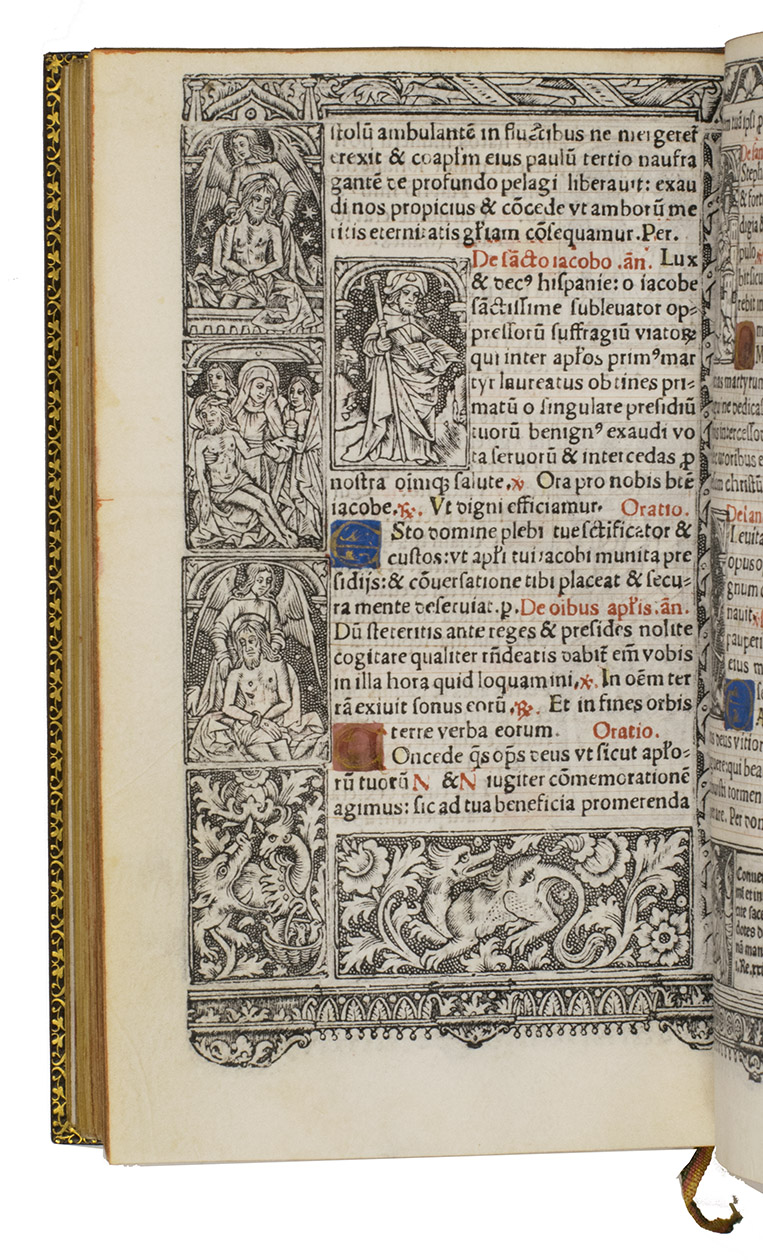 stolū ambulantē in fluctibus ne mergeret̄
erexit & coapl̄m eius paulū tertio naufra
gantē de profundo pelagi liberauit: exau
di nos propicius & cōcede vt amborū me
ritis eternitatis gr̄iam cōsequamur. Per.
De sācto iacobo .ān. Lux
& decꝰ hispanie: o iacobe
sāctissime subleuator op⸗
pressorū suffragiū viatoꝝ
qui inter apl̄os primꝰ mar
tyr laureatus obtines pri⸗
matū o singulare presidiū
tuorū benignꝰ exaudi vo
ta seruorū & intercedas ꝓ
nostra oīniqꝫ salute. ℣ Ora pro nobis btē
iacobe. ℟. Vt digni efficiamur. Oratio.
ESto domine plebi tue sctīficator &
custos: vt apl̄i tui iacobi munita pre
sidijs: & cōuersatione tibi placeat & secu⸗
ra mente deseruiat. p. De oībus apl̄is .ān.
Dū steteritis ante reges & presides nolite
cogitare qualiter rn̄deatis dabit̄ em̄ vobis
in illa hora quid loquamini. ℣. In oēm ter
rā exiuit sonus eorū. ℟. Et in fines orbis
terre verba eorum. Oratio.
COncede q̄s op̄s deus vt sicut apl̄o⸗
rū tuorū N & N iugiter cōmemorationē
agimus: sic ad tua beneficia promerenda
Steph
& forti
digia &
pulo
M
martyrum
ne dedica
intercesso
christū
De san
Leuita
opus o
gnum
nauit
pauperi
eius m
deus vition
qui bea
tormen
Per dom
Conuer